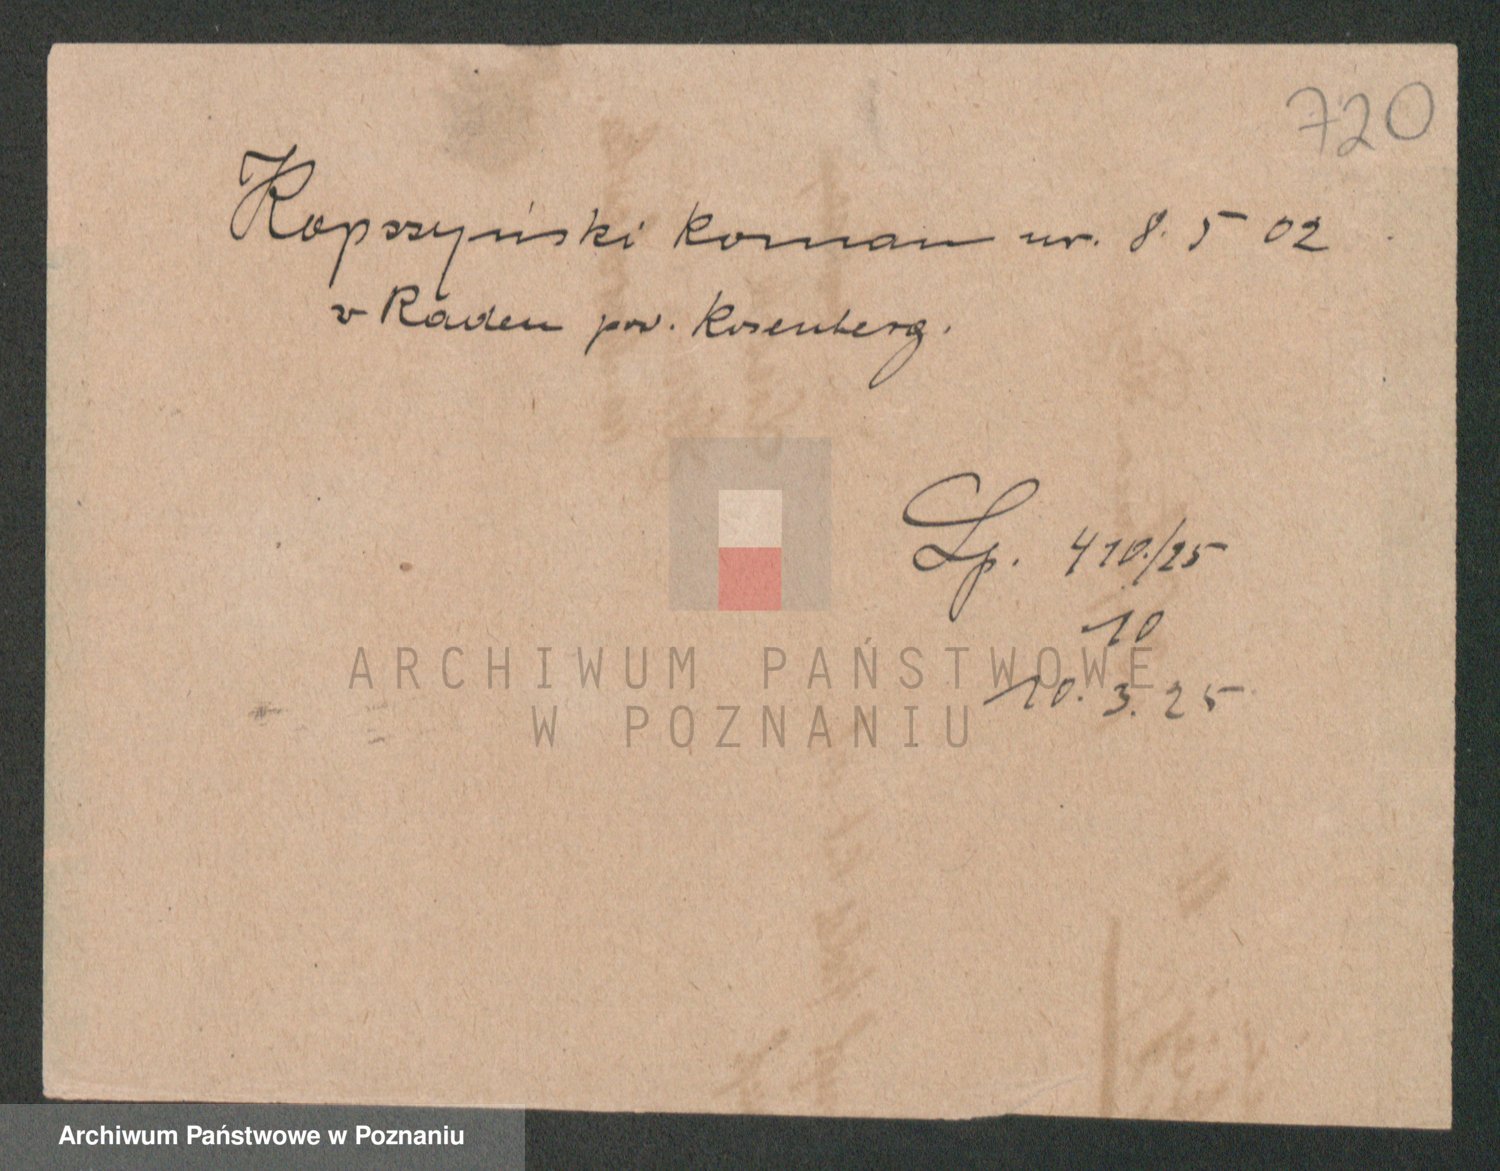 720
Kopszyński Roman ur. 8. 5 02
w Raden pow. Rosenberg.
Lp. 410/25
10
10. 3. 25
ARCHIWUM PAŃSTWOWE
W POZNANIU
Archiwum Państwowe w Poznaniu